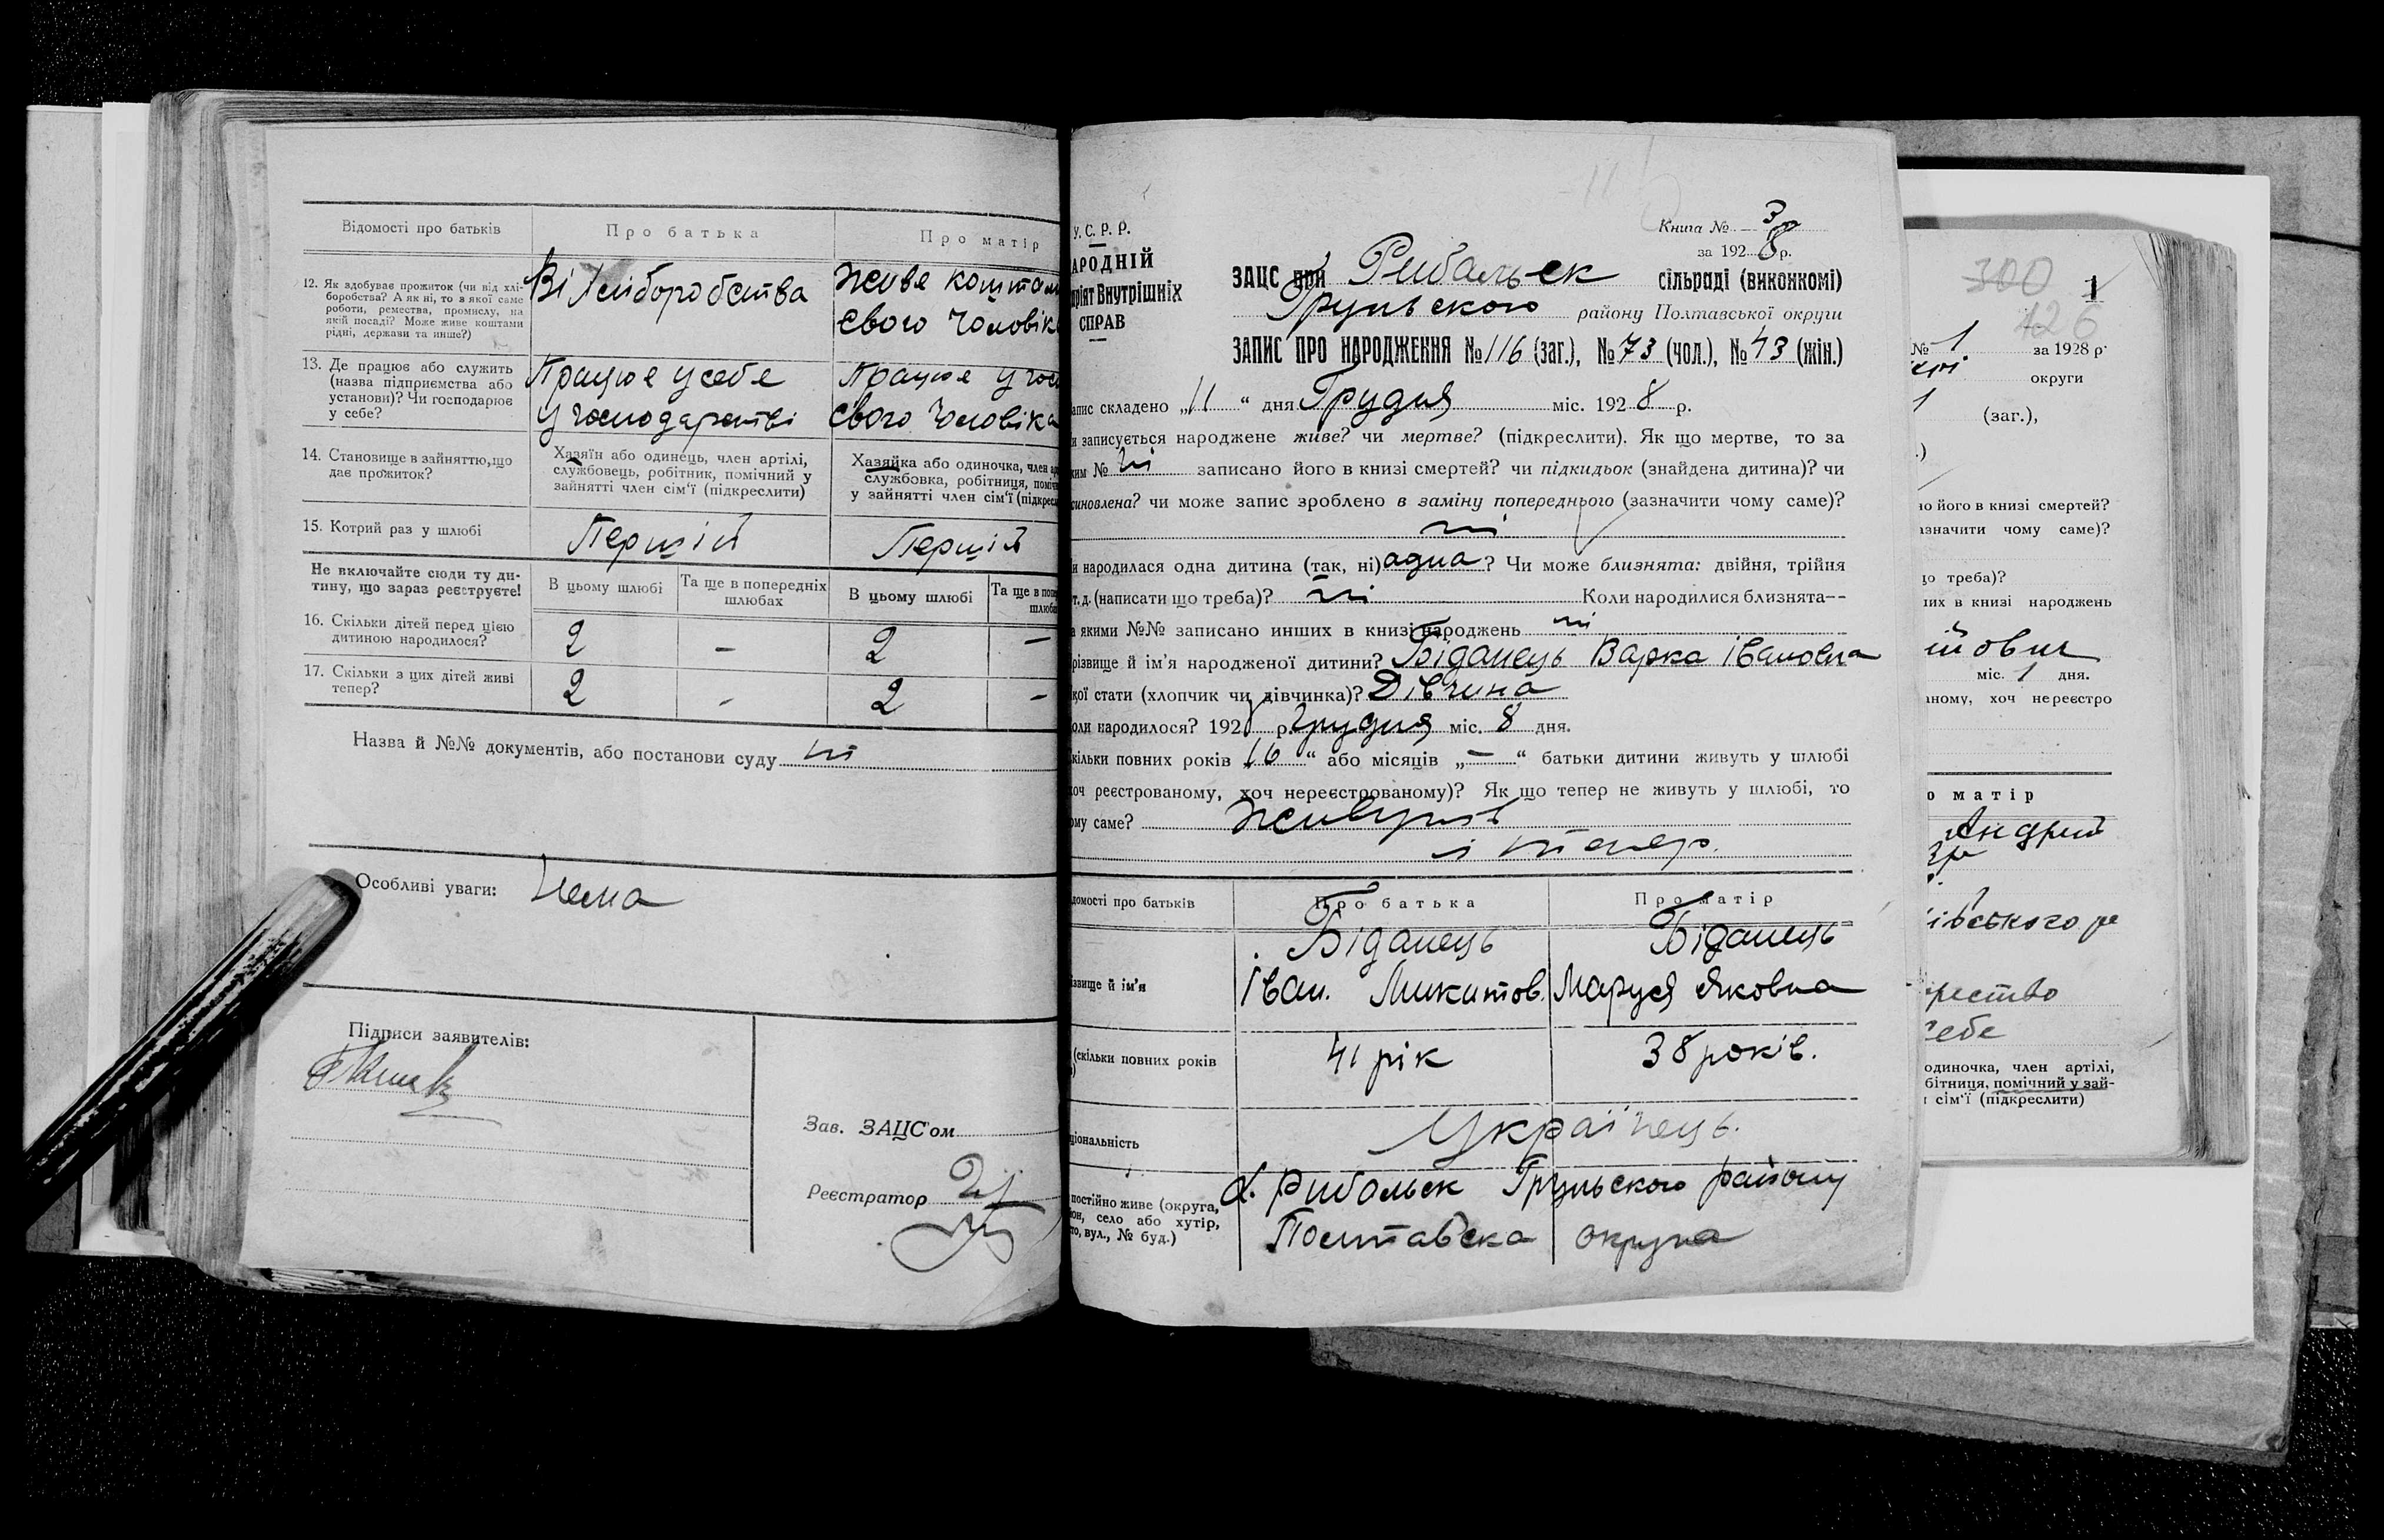 Відомості про батьків
Про батька
Про матір
12. Як здобуває прожиток (чи від хлі-
боробства? А як ні, то з якої саме
роботи, ремества, промислу, на
якій посаді? Може живе коштами
рідні, держави та инше?)
Від Хліборобства
Живе коштам
свого Чоловіка
13. Де працює або служить
(назва підприємства або
установи)? Чи господарює
у себе?
Працює у себе
у господарстві
Працює у гос
свого Чоловіка
14. Становище в зайняттю, що
дає прожиток?
Хазяїн або одинець, член артілі,
службовець, робітник, помічний у
зайнятті член сім'ї (підкреслити)
Хазяйка або одиночка, член ар
службовка, робітниця, поміч
у зайнятті член сім'ї (підкрес
15. Котрий раз у шлюбі
Перший
Перший
Не включайте сюди ту ди-
тину, що зараз реєструєте!
В цьому шлюбі
Та ще в попередніх
шлюбах
В цьому шлюбі
Та ще в поп
шлюб
16. Скільки дітей перед цією
дитиною народилося?
2 - 2 -
17. Скільки з цих дітей живі
тепер?
2 - 2 -
Назва й №№ документів, або постанови суду ні
Особливі уваги: Нема
Підписи заявителів:
Зав. ЗАЦС'ом
Реєстратор
У.С.Р.Р.
АРОДНІЙ
ріят Внутрішніх
СПРАВ
Книга № 3
за 1928 р.
ЗАЦС при Рибальск сільраді (виконкомі)
Грунського району Полтавської округи
ЗАПИС ПРО НАРОДЖЕННЯ № 116 (заг.), № 73 (чол.), № 43 (жін.)
апис складено „11“ дня Грудня міс. 1928 р.
и записується народжене живе? чи мертве? (підкреслити). Як що мертве, то за
ким № ні записано його в книзі смертей? чи підкидьок (знайдена дитина)? чи
синовлена? чи може запис зроблено в заміну попереднього (зазначити чому саме)?
ні
и народилася одна дитина (так, ні) адна? Чи може близнята: двійня, трійня
т. д. (написати що треба)? ні Коли народилися близнята--
а якими №№ записано инших в книзі народжень ні
різвище й ім'я народженої дитини? Біданець Варка Івановна
кої стати (хлопчик чи дівчинка)? Дівчина
оли народилося? 1928 р. Грудня міс. 8 дня.
кільки повних років „16“ або місяців „—“ батьки дитини живуть у шлюбі
оч реєстрованому, хоч нереєстрованому)? Як що тепер не живуть у шлюбі, то
ому саме? Живуть
і тепер.
домості про батьків
Про батька
Про матір
ізвище й ім'я
Біданець
Іван. Микитов.
Біданець
Маруся Яковна
(скільки повних років
41 рік
38 років.
ціональність
Українець.
постійно живе (округа,
он, село або хутір,
то, вул., № буд.)
с. Рибальск Грунського району
Полтавська округа
300
1
126
№ 1 за 1928 р.
округи
1 (заг.),
.)
о його в книзі смертей?
азначити чому саме)?
до треба)?
их в книзі народжень
йович
міс. 1 дня.
ному, хоч нереєстро
о матір
Андрій
івського р
рество
себе
одиночка, член артілі,
бітниця, помічний у зай-
сім'ї (підкреслити)